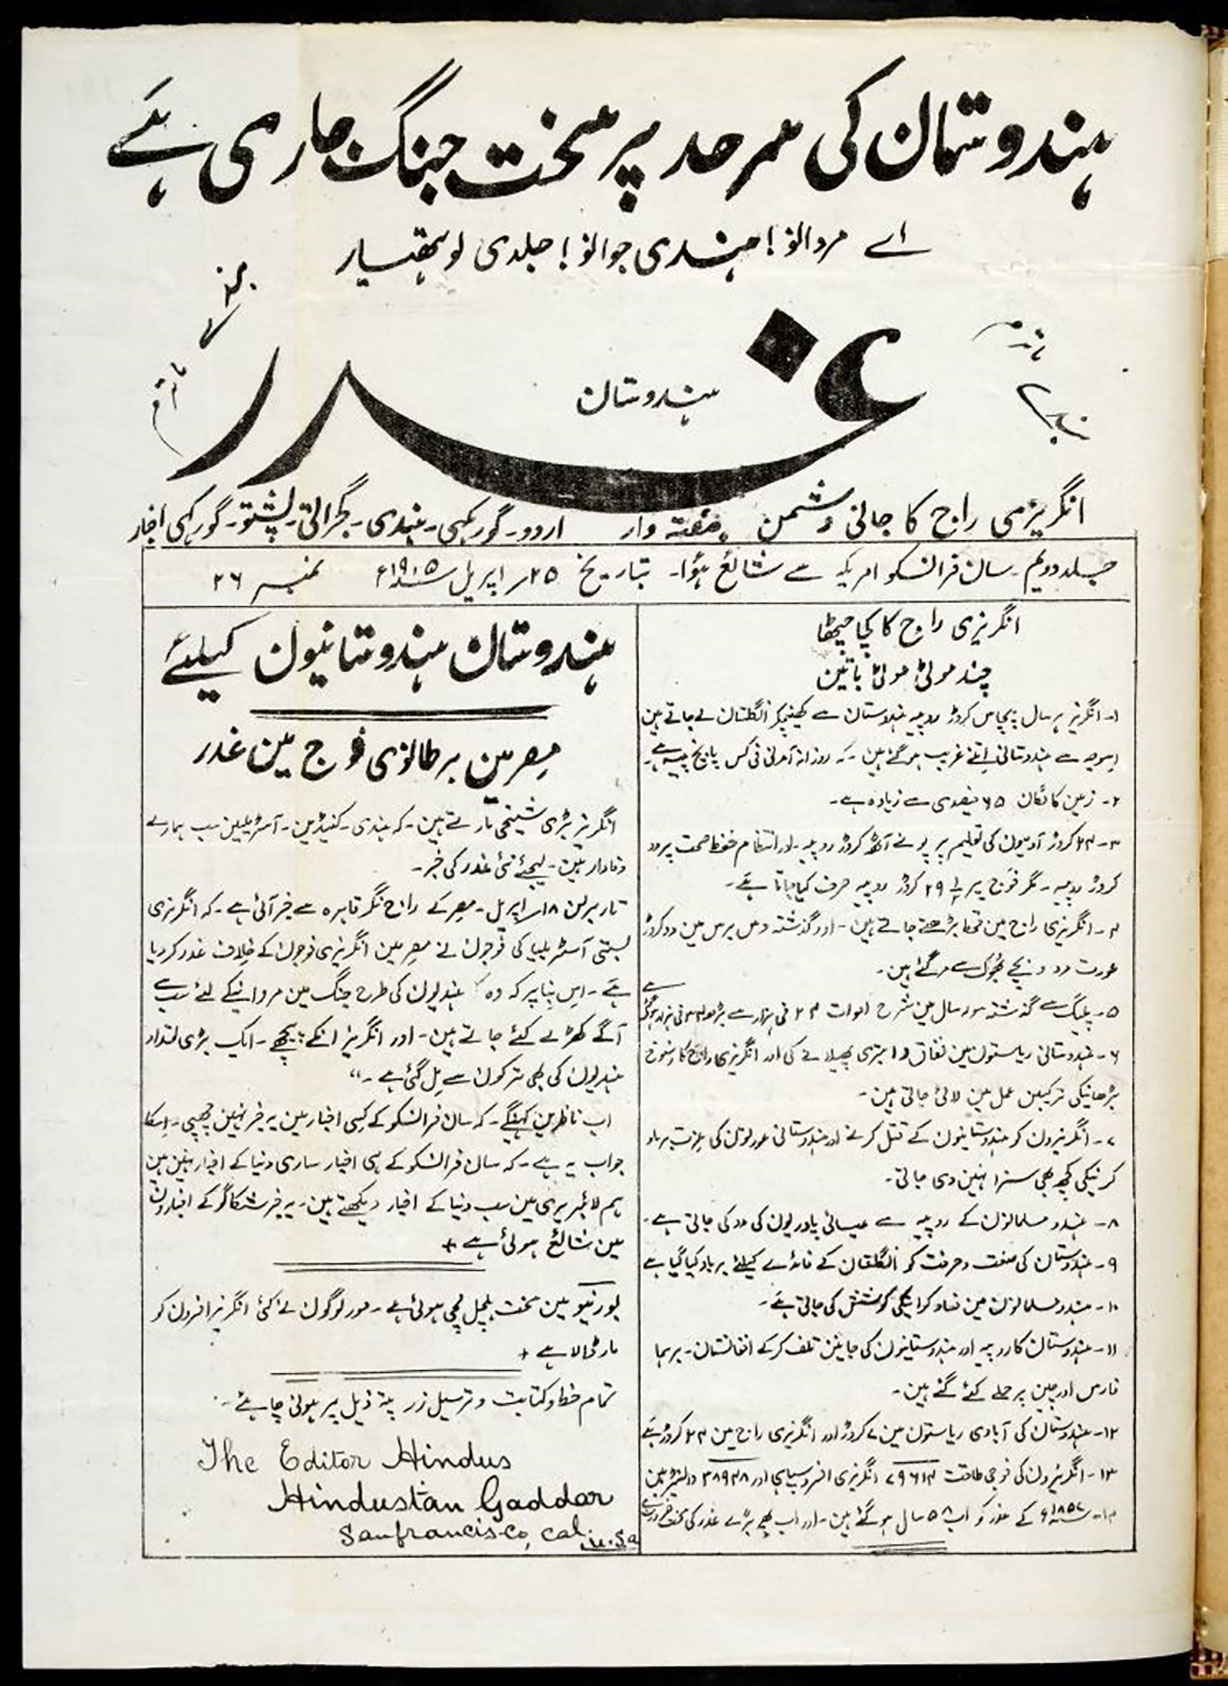 ہندوستان کی سرحد پر سخت جنگ جاری ہے
اے مردانو! ہندی جوانو! جلدی لو ہتھیار
بندے
ماترم
غدر
ہندوستان
انگریزی راج کا جانی دشمن ہفتہ وار اردو۔ گورمکھی۔ ہندی۔ گجراتی۔ پشتو۔ گورکھی اخبار
جلد دویم۔ سان فرانسسکو امریکہ سے شائع ہؤا۔ بتاریخ ۲۵ اپریل ۱۹۱۵ء نمبر ۲۶
انگریزی راج کا کچا چٹھا
چند موٹی موٹی باتین
۱۔ انگریز ہر سال پچاس کروڑ روپیہ ہندوستان سے کھینچکر انگلستان لے جاتے ہین
اسوجہ سے ہندوستانی اتنے غریب ہو گئے ہین۔ کہ روزانہ آمدنی فی کس پانچ پیسہ ہے
۲۔ زمین کا لگان ۶۵ فیصدی سے زیادہ ہے۔
۳۔ ۲۴ کروڑ آدمیون کی تعلیم پر پونے آٹھ کروڑ روپیہ۔ اور انتظام حفظ صحت پر دو
کروڑ روپیہ۔ مگر فوج پر ۲۹ کروڑ روپیہ صرف کیا جاتا ہے۔
۴۔ انگریزی راج مین قحط بڑھتے جاتے ہین۔ اور گذشتہ دس برس مین دو کروڑ
عورت مرد و بچے بھوک سے مر گئے ہین۔
۵۔ پلیگ سے گذشتہ سولہ سال مین شرح اموات ۲۴ فی ہزار سے بڑھکر ۳۴ فی ہزار ہوگئی
۶۔ ہندوستانی ریاستون مین نفاق و ابتری پھیلانے کی اور انگریزی راج کا رسوخ
بڑھانیکی ترکیبین عمل مین لائی جاتی ہین۔
۷۔ انگریزون کو ہندوستانیون کے قتل کرنے اور ہندوستانی عورتون کی عزت برباد
کرنیکی کچھ بھی سزا نہین دی جاتی۔
۸۔ ہندو مسلمانون کے روپیہ سے عیسائی پادریون کی مدد کی جاتی ہے۔
۹۔ ہندوستان کی صنعت و حرفت کو انگلستان کے فائدے کیلئے برباد کیا گیا ہے
۱۰۔ ہندو مسلمانون مین فساد کرانیکی کوشش کی جاتی ہے۔
۱۱۔ ہندوستان کا روپیہ اور ہندوستانیون کی جانین تلف کرکے افغانستان۔ برہما
فارس اور چین پر حملے کئے گئے ہین۔
۱۲۔ ہندوستان کی آبادی ریاستون مین ۷ کروڑ اور انگریزی راج مین ۲۴ کروڑ ہے
۱۳۔ انگریزون کی فوجی طاقت ۷۹۶۱۴ انگریزی افسر و سپاہی اور ۳۸۹۴۸ والنٹیر ہین
۱۴۔ ۱۸۵۷ء کے غدر کو اب ۵۸ سال ہو گئے ہین۔ اور اب پھر بڑے غدر کی سخت ضرورت ہے
ہندوستان ہندوستانیون کیلئے
مصر مین برطانوی فوج مین غدر
انگریز بڑی شیخی مارتے ہین۔ کہ ہندی۔ کنیڈین۔ آسٹریلین سب ہمارے
وفادار ہین۔ لیجئے نئی غدر کی خبر۔
تار برلن ۱۸ اپریل۔ مصر کے راج نگر قاہرہ سے خبر آئی ہے۔ کہ انگریزی
بستی آسٹریلیا کی فوجون نے مصر مین انگریزی فوجون کے خلاف غدر کردیا
ہے۔ اس بنا پر کہ وہ "ہندیون کی طرح جنگ مین مروانیکے لئے سب سے
آگے کھڑے کئے جاتے ہین۔ اور انگریز انکے پیچھے۔ ایک بڑی تعداد
ہندیون کی بھی ترکون سے مل گئی ہے۔"
اب ناظرین کہینگے۔ کہ سان فرانسسکو کے کسی اخبار مین یہ خبر نہین چھپی۔ اسکا
جواب یہ ہے۔ کہ سان فرانسسکو کے ہی اخبار ساری دنیا کے اخبار نہین ہین
ہم لائبریری مین سب دنیا کے اخبار دیکھتے ہین۔ یہ خبر شکاگو کے اخبارون
مین شائع ہوئی ہے +
بورنیو مین سخت ہلچل مچی ہوئی ہے۔ مور لوگون نے کئی انگریز افسرون کو
مار ڈالا ہے +
تمام خط و کتابت و ترسیل زر پتہ ذیل پر ہونی چاہئے۔
The Editor Hindus
Hindustan Gaddar
Sanfrancisco, cal. U.S.a